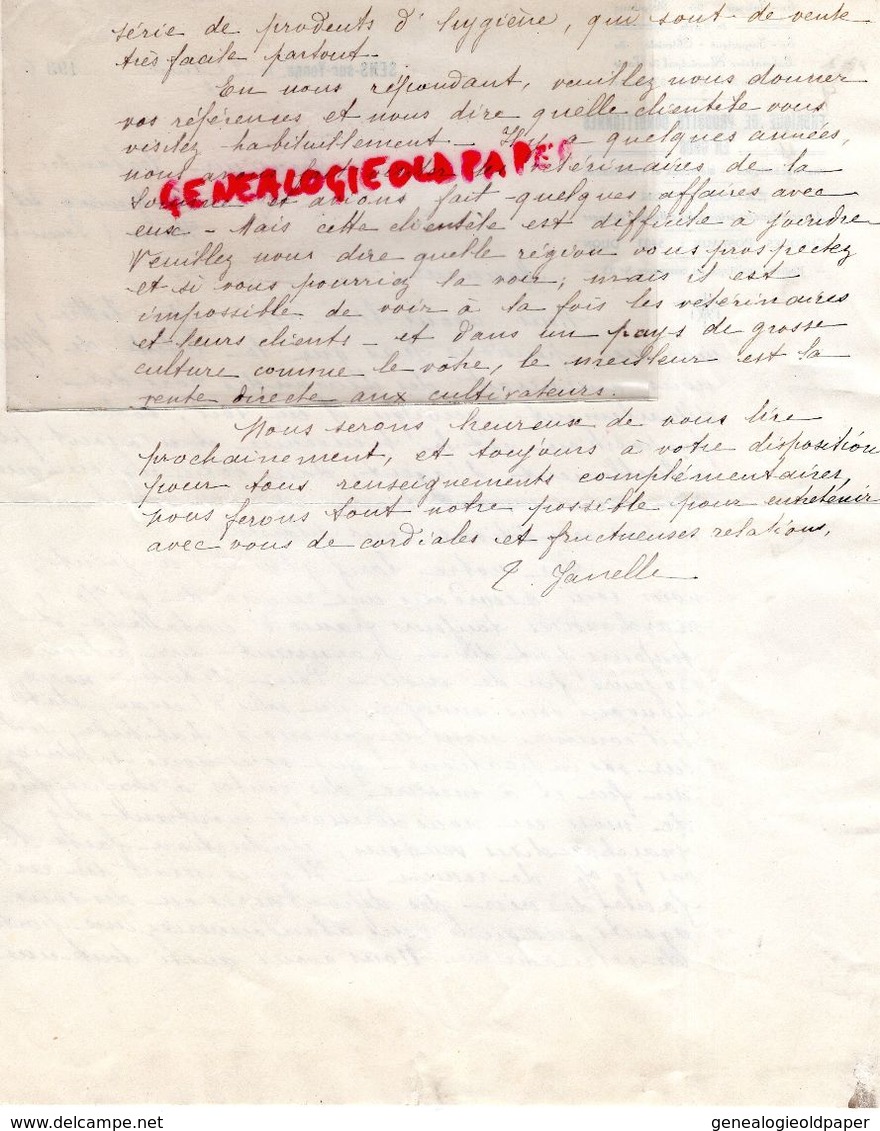 série de produits d'hygiène, qui sont de vente
très facile partout.
En nous répondant, veuillez nous donner
vos références et nous dire quelle clientèle vous
visitez habituellement - Il y a quelques années,
nous avons vétérinaires de la
Somme et avions fait quelques affaires avec
eux - Mais cette clientèle est difficile à joindre
Veuillez nous dire quelle région vous prospectez
et si vous pourriez la voir; mais il est
impossible de voir à la fois les vétérinaires
et leurs clients - et dans un pays de grosse
culture comme le vôtre, le meilleur est la
vente directe aux cultivateurs.
Nous serons heureux de vous lire
prochainement, et toujours à votre disposition
pour tous renseignements complémentaires
nous ferons tout notre possible pour entretenir
avec vous de cordiales et fructueuses relations.
Janelle
GENEALOGIEOLDPAPER
delcampe.net
genealogieoldpaper